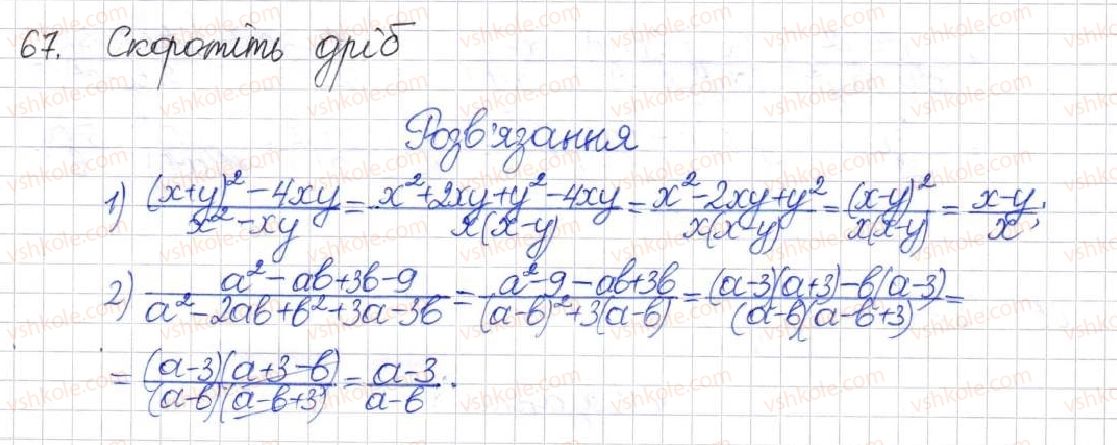 67. Скоротіть дріб
Розв'язання
1) ((x+y)²-4xy)/(x²-xy) = (x²+2xy+y²-4xy)/(x(x-y)) = (x²-2xy+y²)/(x(x-y)) = (x-y)²/(x(x-y)) = (x-y)/x;
2) (a²-ab+3b-9)/(a²-2ab+b²+3a-3b) = (a²-9-ab+3b)/((a-b)²+3(a-b)) = ((a-3)(a+3)-b(a-3))/((a-b)(a-b+3)) =
= ((a-3)(a+3-b))/((a-b)(a-b+3)) = (a-3)/(a-b).
vshkole.com